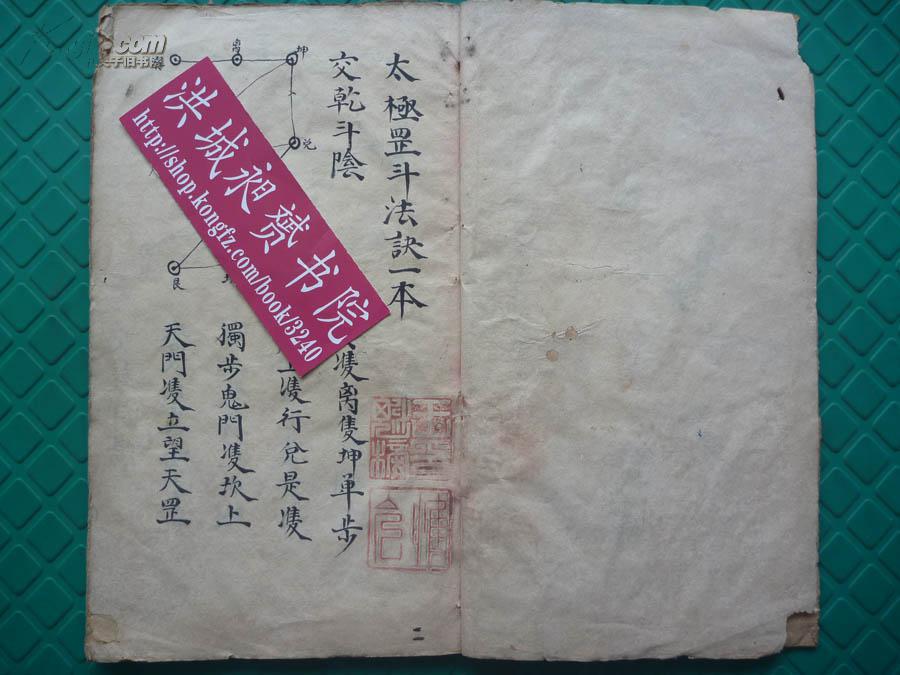 太極罡斗法訣一本
交乾斗陰
坤
离
巽
兌
艮
隻离隻坤单步
隻行兌是隻
獨步鬼門隻坎上
天門隻立望天罡
二
洪城昶赟书院
http://shop.kongfz.com/book/3240
.com
孔夫子旧书网